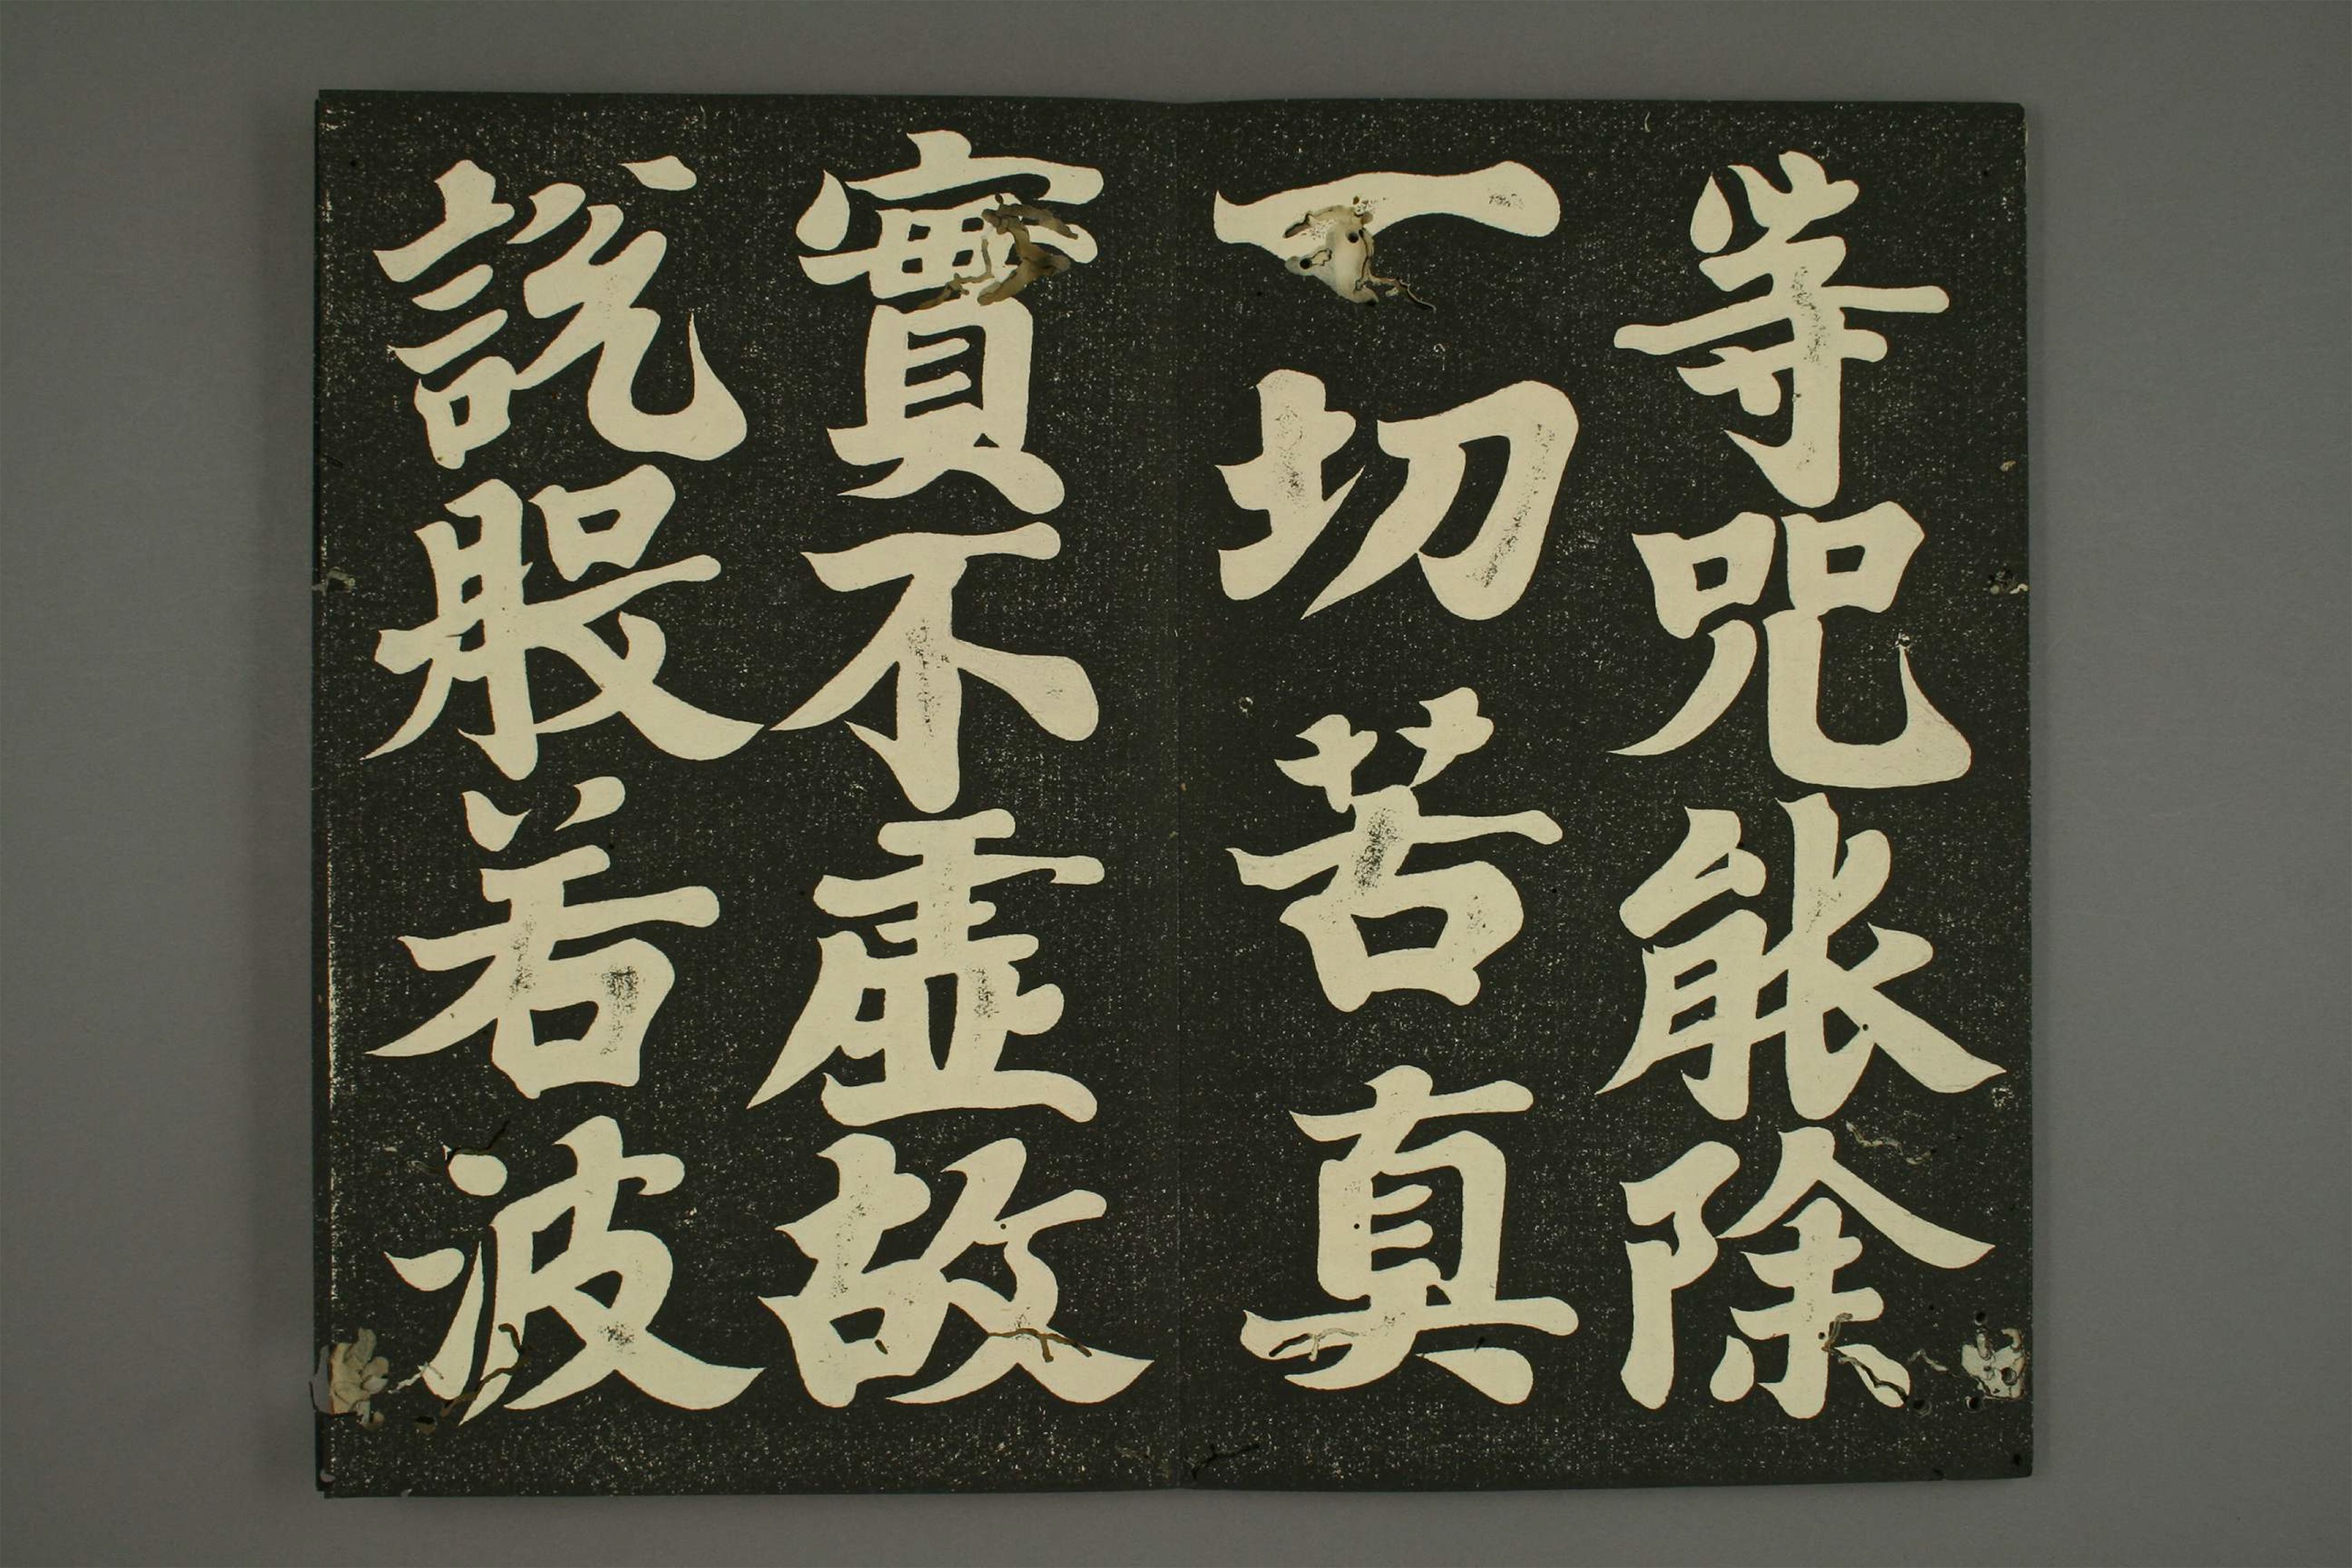 等咒能除
一切苦真
實不虛故
說般若波